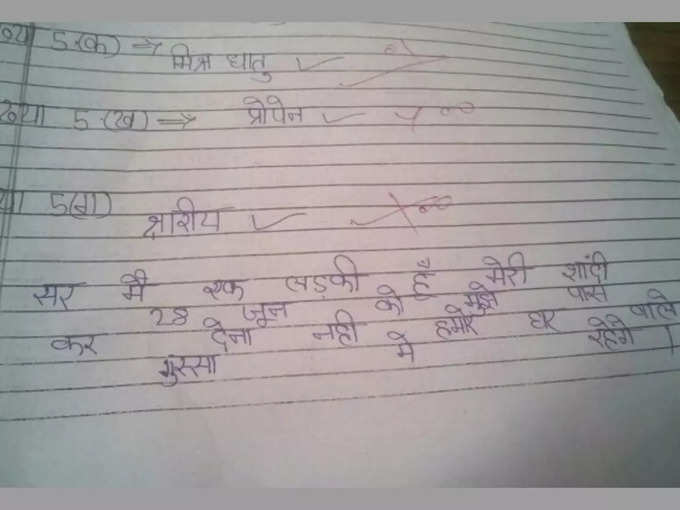 5.(क) ⇒ मिश्र धातु
ख्या 5.(ख) ⇒ प्रोपेन
5(ग)
क्षारीय
सर मैं एक लड़की हूँ मेरी शादी
28 जून को मुझे पास
कर देना नही हमारे घर वाले
गुस्सा मे रहेंगे।